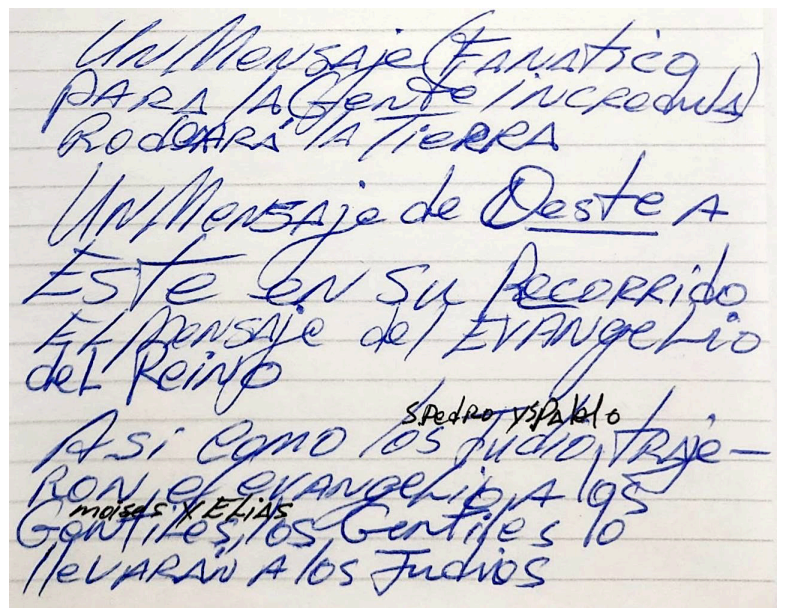 Un Mensaje (Fanatico
para la Gente incredula)
Rodeará la Tierra
Un Mensaje de Oeste a
Este en su Recorrido
El Mensaje del Evangelio
del Reino
S Pedro y S Pablo
Asi como los Judio, traje-
ron el evangelio a los
moises y Elias
Gentiles, los Gentiles lo
llevarán a los Judios